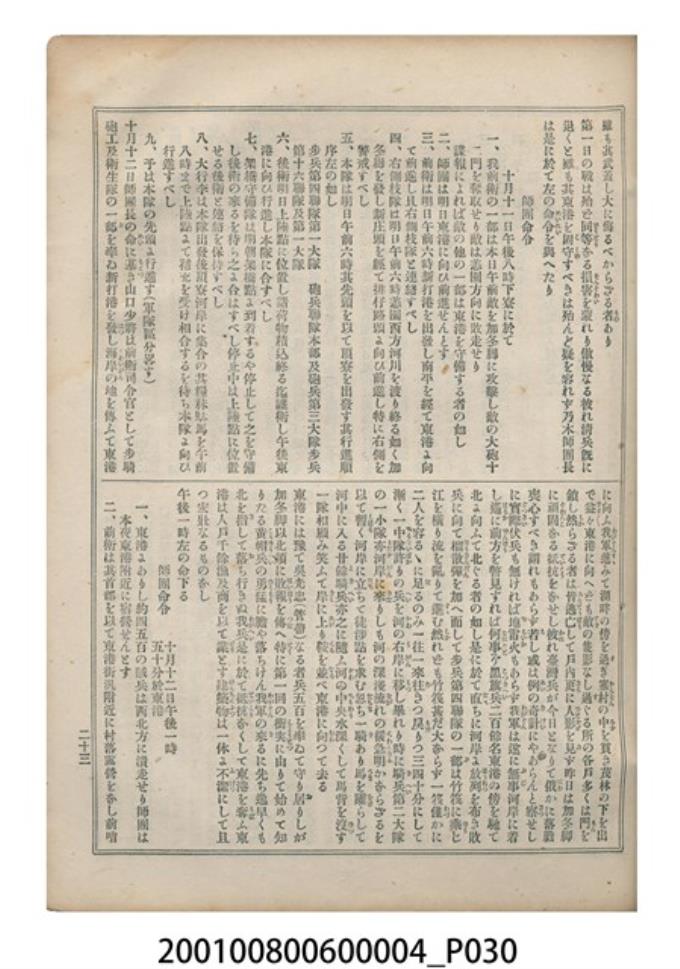 雖も其武盖し大に侮るべからざる者あり
第一日の戰は殆ど同等なる損害を蒙れり傲慢なる彼れ清兵既に
退くと雖も其東港を固守すべきは殆んど疑を容れず乃木師團長
は是に於て左の命令を與へたり
師團命令
十月十一日午後八時下寮に於て
一、我前衛の一部は本日午前敵を加冬脚に攻擊し敵の大砲十
二門を奪取せり敵は志團方向に敗走せり
諜報によれば敵の他の一部は東港を守備する者の如し
二、師團は明日東港に向ひ前進せんとす
三、前衛は明日午前六時新打港を出發し南平を經て東港に向
て前進し且右側枝隊と連繫すべし
四、右側枝隊は明日午前六時志團西方河川を渡り終る如く加
冬脚を發し新庄頭を經て排仔路頭に向ひ前進し特に右側を
警戒すべし
五、本隊は明日午前六時其先頭を以て頂寮を出發す其行進順
序左の如し
步兵第四聯隊第一大隊 砲兵聯隊本部及砲兵第三大隊步兵
第十六聯隊及第一大隊
六、後衛明日上陸點に位置し諸荷物積込終る迄護衛し午後東
港に向ひ行進し本隊に合すべし
七、架橋守備隊は明朝架橋點に到着するや停止して之を守備
し後衛の來るを待ち之に合はすべし停止中は上陸點に位置
せる後衛と連絡を保持すべし
八、大行李は本隊出發後頂寮河岸に集合の其糧秣駄馬を午前
八時まで上陸點にて補充を受け相合するを待ち本隊に向ひ
行進すべし
九、予は本隊の先頭に行進す(軍隊區分畧す)
十月十二日師團長の命に基き山口少將は前衛司令官として步騎
砲工及衛生隊の一部を率ゐ新打港を發し海岸の地を傳ふて東港
に向ふ我軍進みて湖畔の傍を過ぎ叢村の中を貫き茂林の下を出
で益々東港に向へども敵の隻影なし過ぐる所の各戶多くは門を
鎖し然らざる者は皆逃亡して戶內更に人影を見ず昨日は加冬脚
に頑固なる抵抗をなせし彼れ臺灣兵が今日となりて俄かに落膽
喪心すべき謂れもあらず若し或は例の奇計にやあらんと察せし
に實際伏兵も無ければ地雷火もあらず我軍は遂に無事河岸に着
し遙に前方を瞥見すれば何事ぞ黑旗兵二百餘名東港の傍を馳て
北に向ふて北ぐる者の如し是に於て直ちに河岸に放列を布き敗
兵に向て榴霰彈を加へ而して步兵第四聯隊の一部は竹筏に乘じ
江を橫り流を亂りて進む然れども竹筏甚だ大ならず一筏僅かに
二人を容るゝに足るのみ一往一來往きつ戾りつ三四十分にして
漸く一中隊許りの兵を河の右岸に移し畢れり時に騎兵第二大隊
の一小隊亦河岸に來りしも河の深淺流れの緩急明かならざるを
以て暫く河岸に立ちて徒涉點を求む忽ち一騎あり馬を躍らして
河中に入る廿餘騎兵亦之に隨ふ河の中央水深くして馬背を沒す
一隊相顧み笑ふて岸に上り鞍を並べ東港に向つて去る
東港には豫て吳光忠(管帶)なる者兵五百を率ゐて守り居りしが
加冬脚以北頭に敗報を傳へ特に第一回の衝突に由りて始めて知
りたる黃帽兵の勇猛に膽や落ちけん我軍の來るに先ち逸早くも
北を指して落ち行きぬ我兵是に於て抵抗なくして東港を奪ふ東
港は人戶千餘漁及商を以て業とす建築物は一体に不潔にして且
つ宏壯なるものなし
午後一時左の命下る
師團命令
十月十二日午後一時
五十分於東港
一、東港にありし約四五百の賊兵は西北方に潰走せり師團は
本夜東港附近に宿營せんとす
二、前衛は其首部を以て東港街北附近に村落露營をなし前哨
二十三
200100800600004_P030